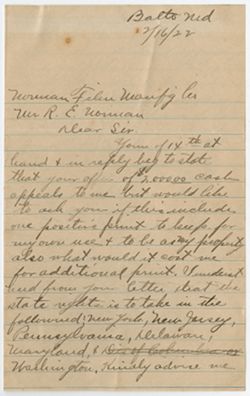 Balto Md
2/16/22
Norman Film Manfg Co
Mr R. E. Norman
Dear Sir.
Yours of 14th at
hand & in reply beg to state
that your of $2,000.00 cash
appeals to me, but would like
to ask you if this includes
one positive print to keep for
my own use & to be as my property
also what would it cost me
for additional print. I underst
and from your letter that the
state rights is to take in the
following: New York, New Jersey,
Pennsylvania, Delaware,
Maryland, & Dis of Columbia or
Washington, Kindly advise me